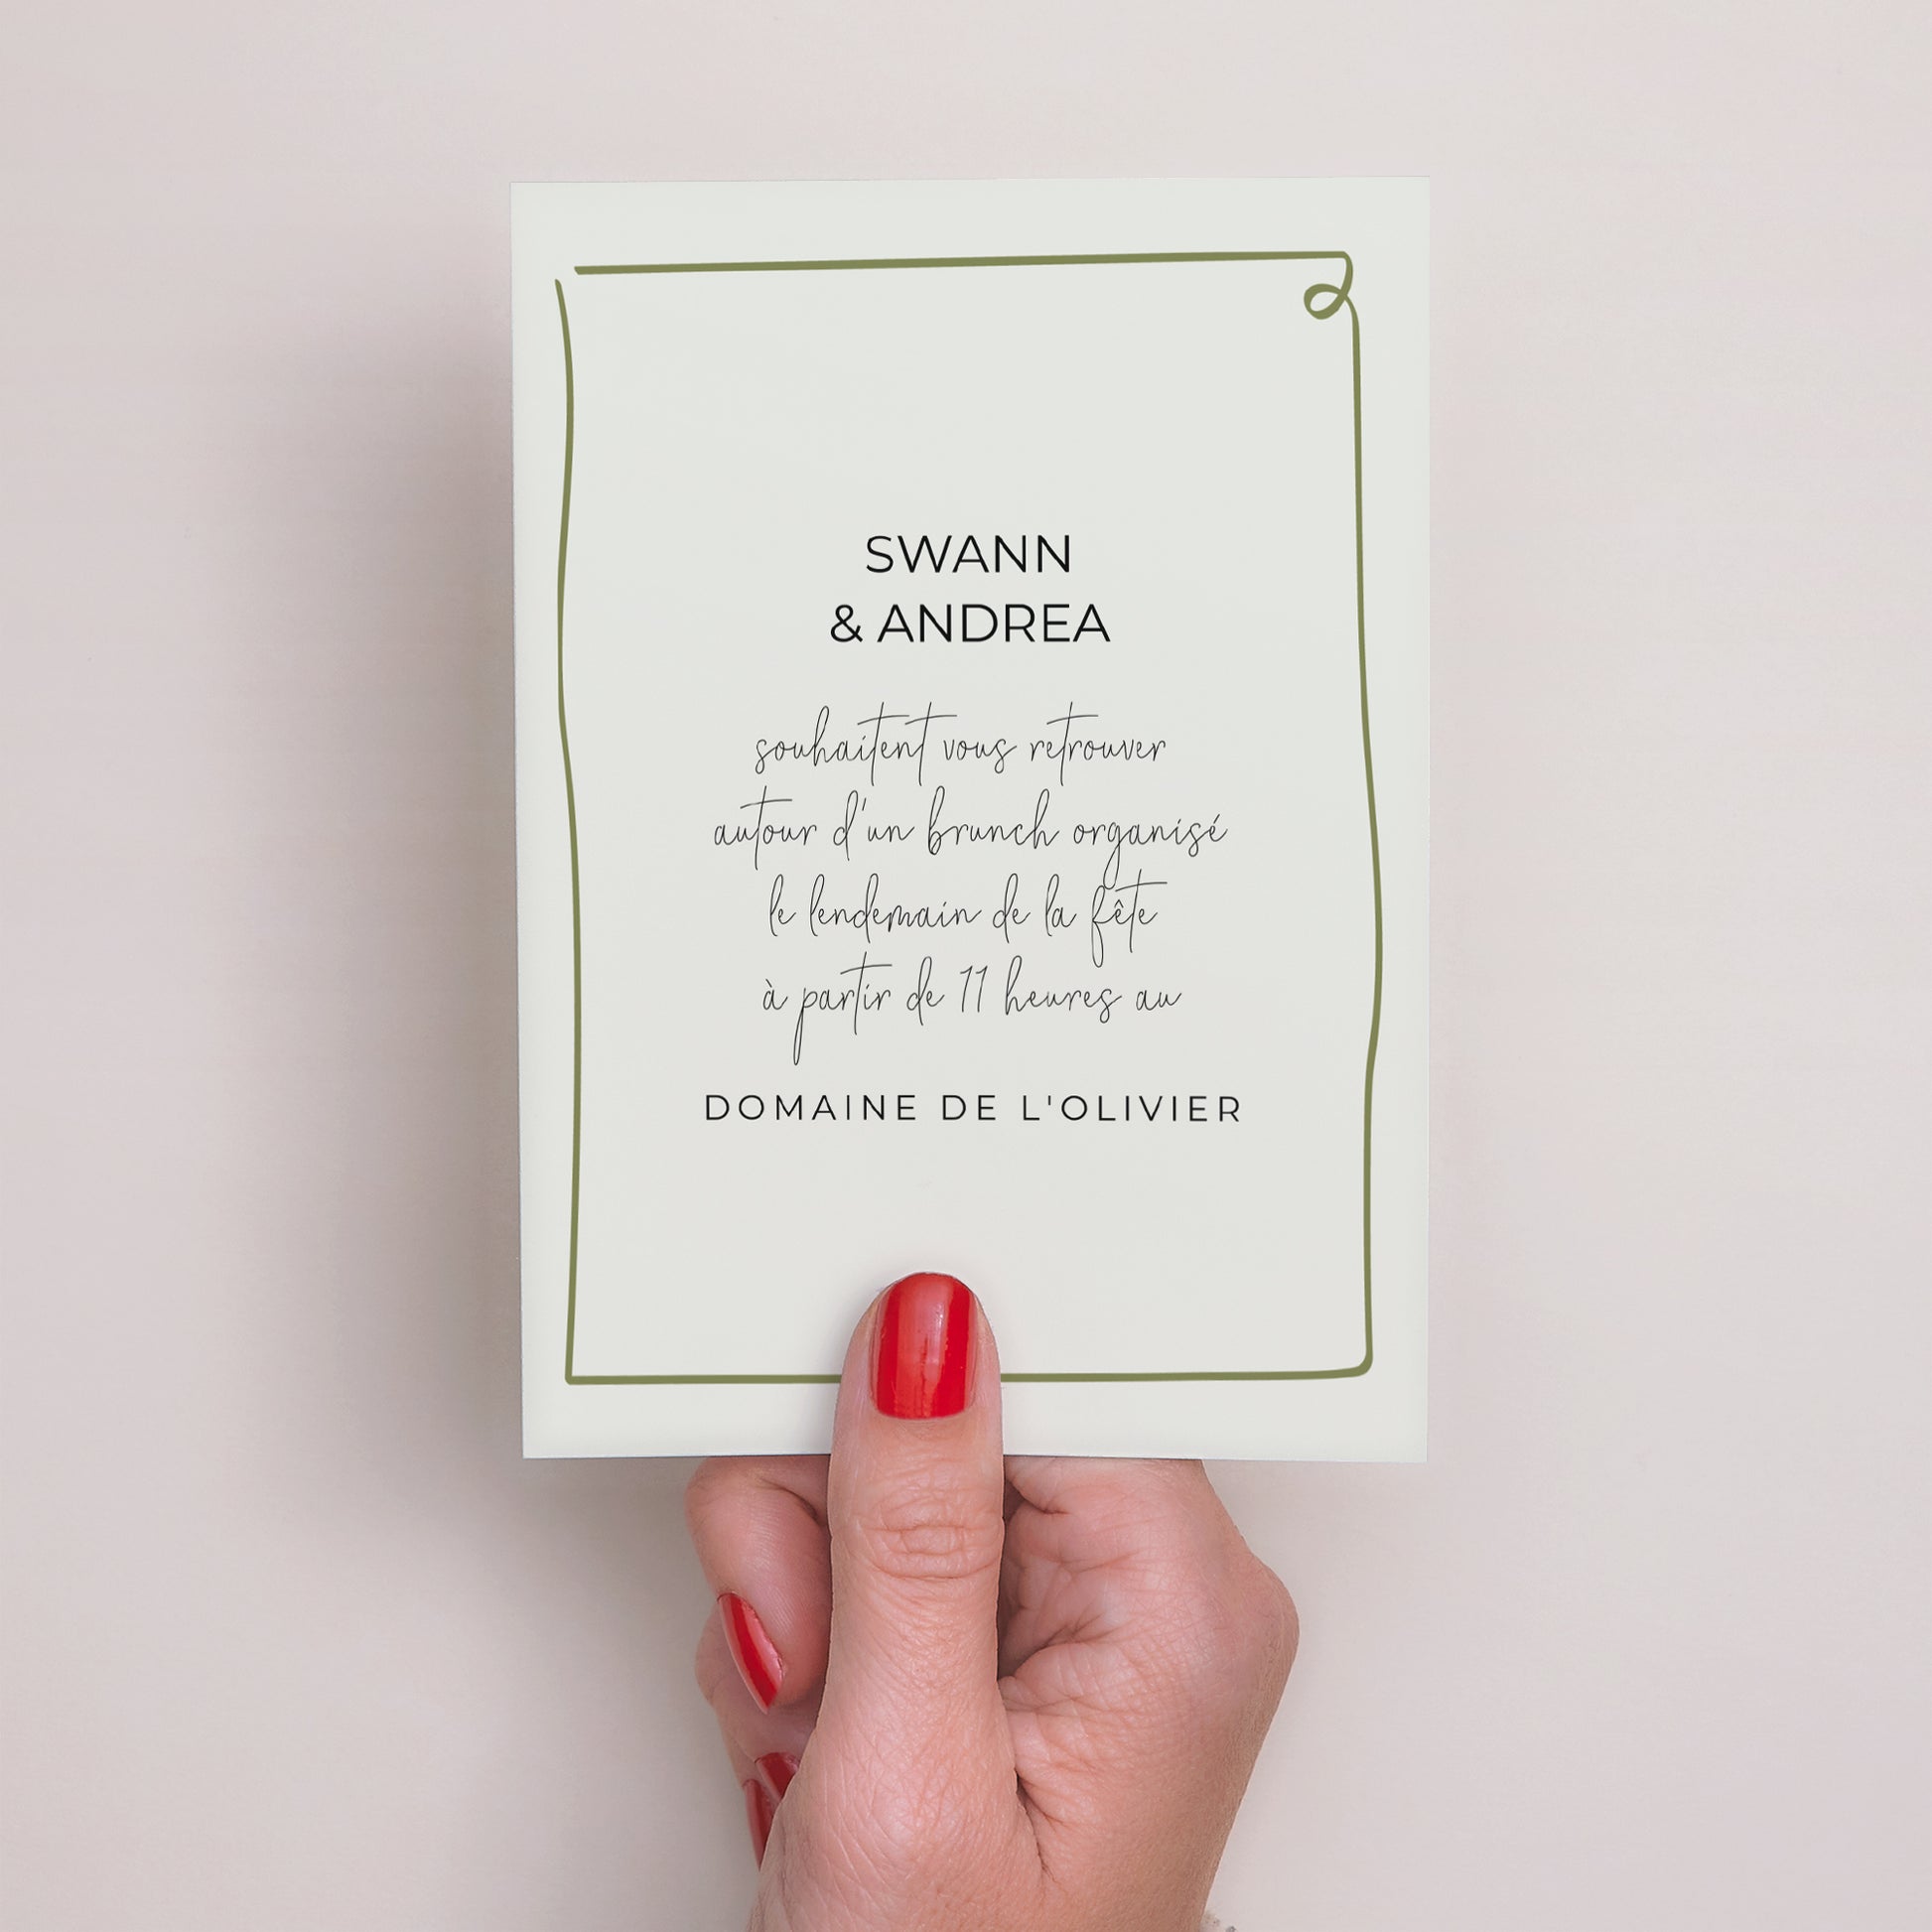 SWANN
& ANDREA
souhaitent vous retrouver
autour d'un brunch organisé
le lendemain de la fête
à partir de 11 heures au
DOMAINE DE L'OLIVIER